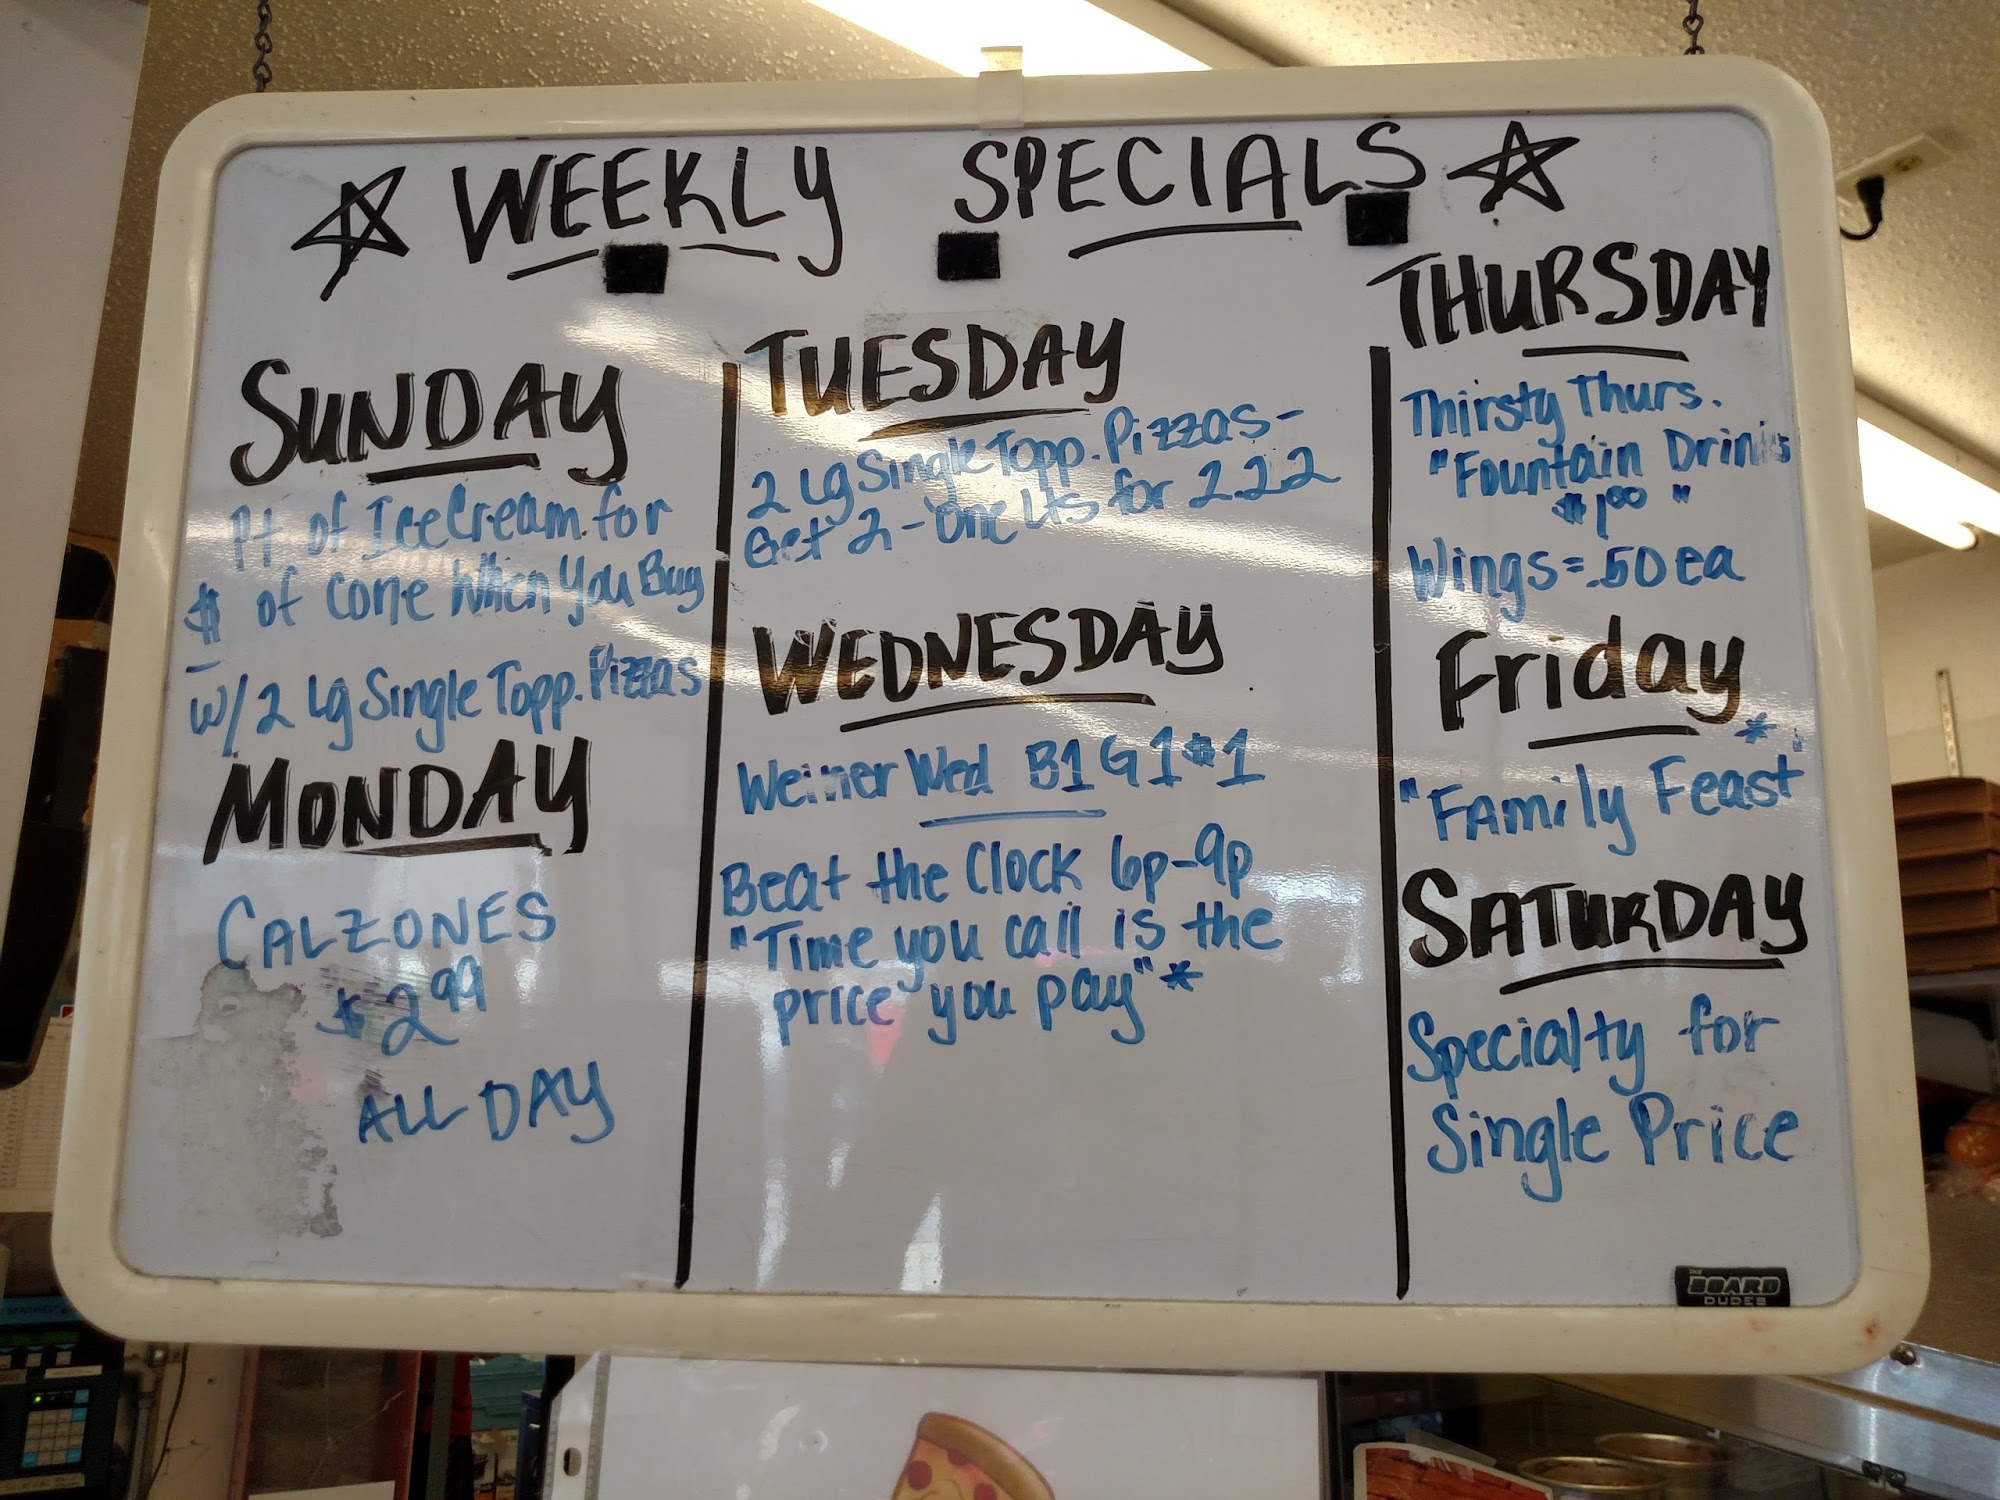 WEEKLY SPECIALS
SUNDAY
Pt of IceCream for
$ of cone When You Buy
w/2 Lg Single Topp. Pizzas
MONDAY
CALZONES
$2.99
ALL DAY
TUESDAY
2 Lg Single Topp. Pizzas-
Get 2-One Lts for 2.22
WEDNESDAY
Weiner Wed B1G1$1
Beat the Clock 6p-9p
"Time you call is the
price you pay"*
THURSDAY
Thirsty Thurs.
"Fountain Drinks
$1.00"
Wings=.50 ea
Friday
*
"Family Feast"
SATURDAY
Specialty for
Single Price
THE
BOARD
DUDES